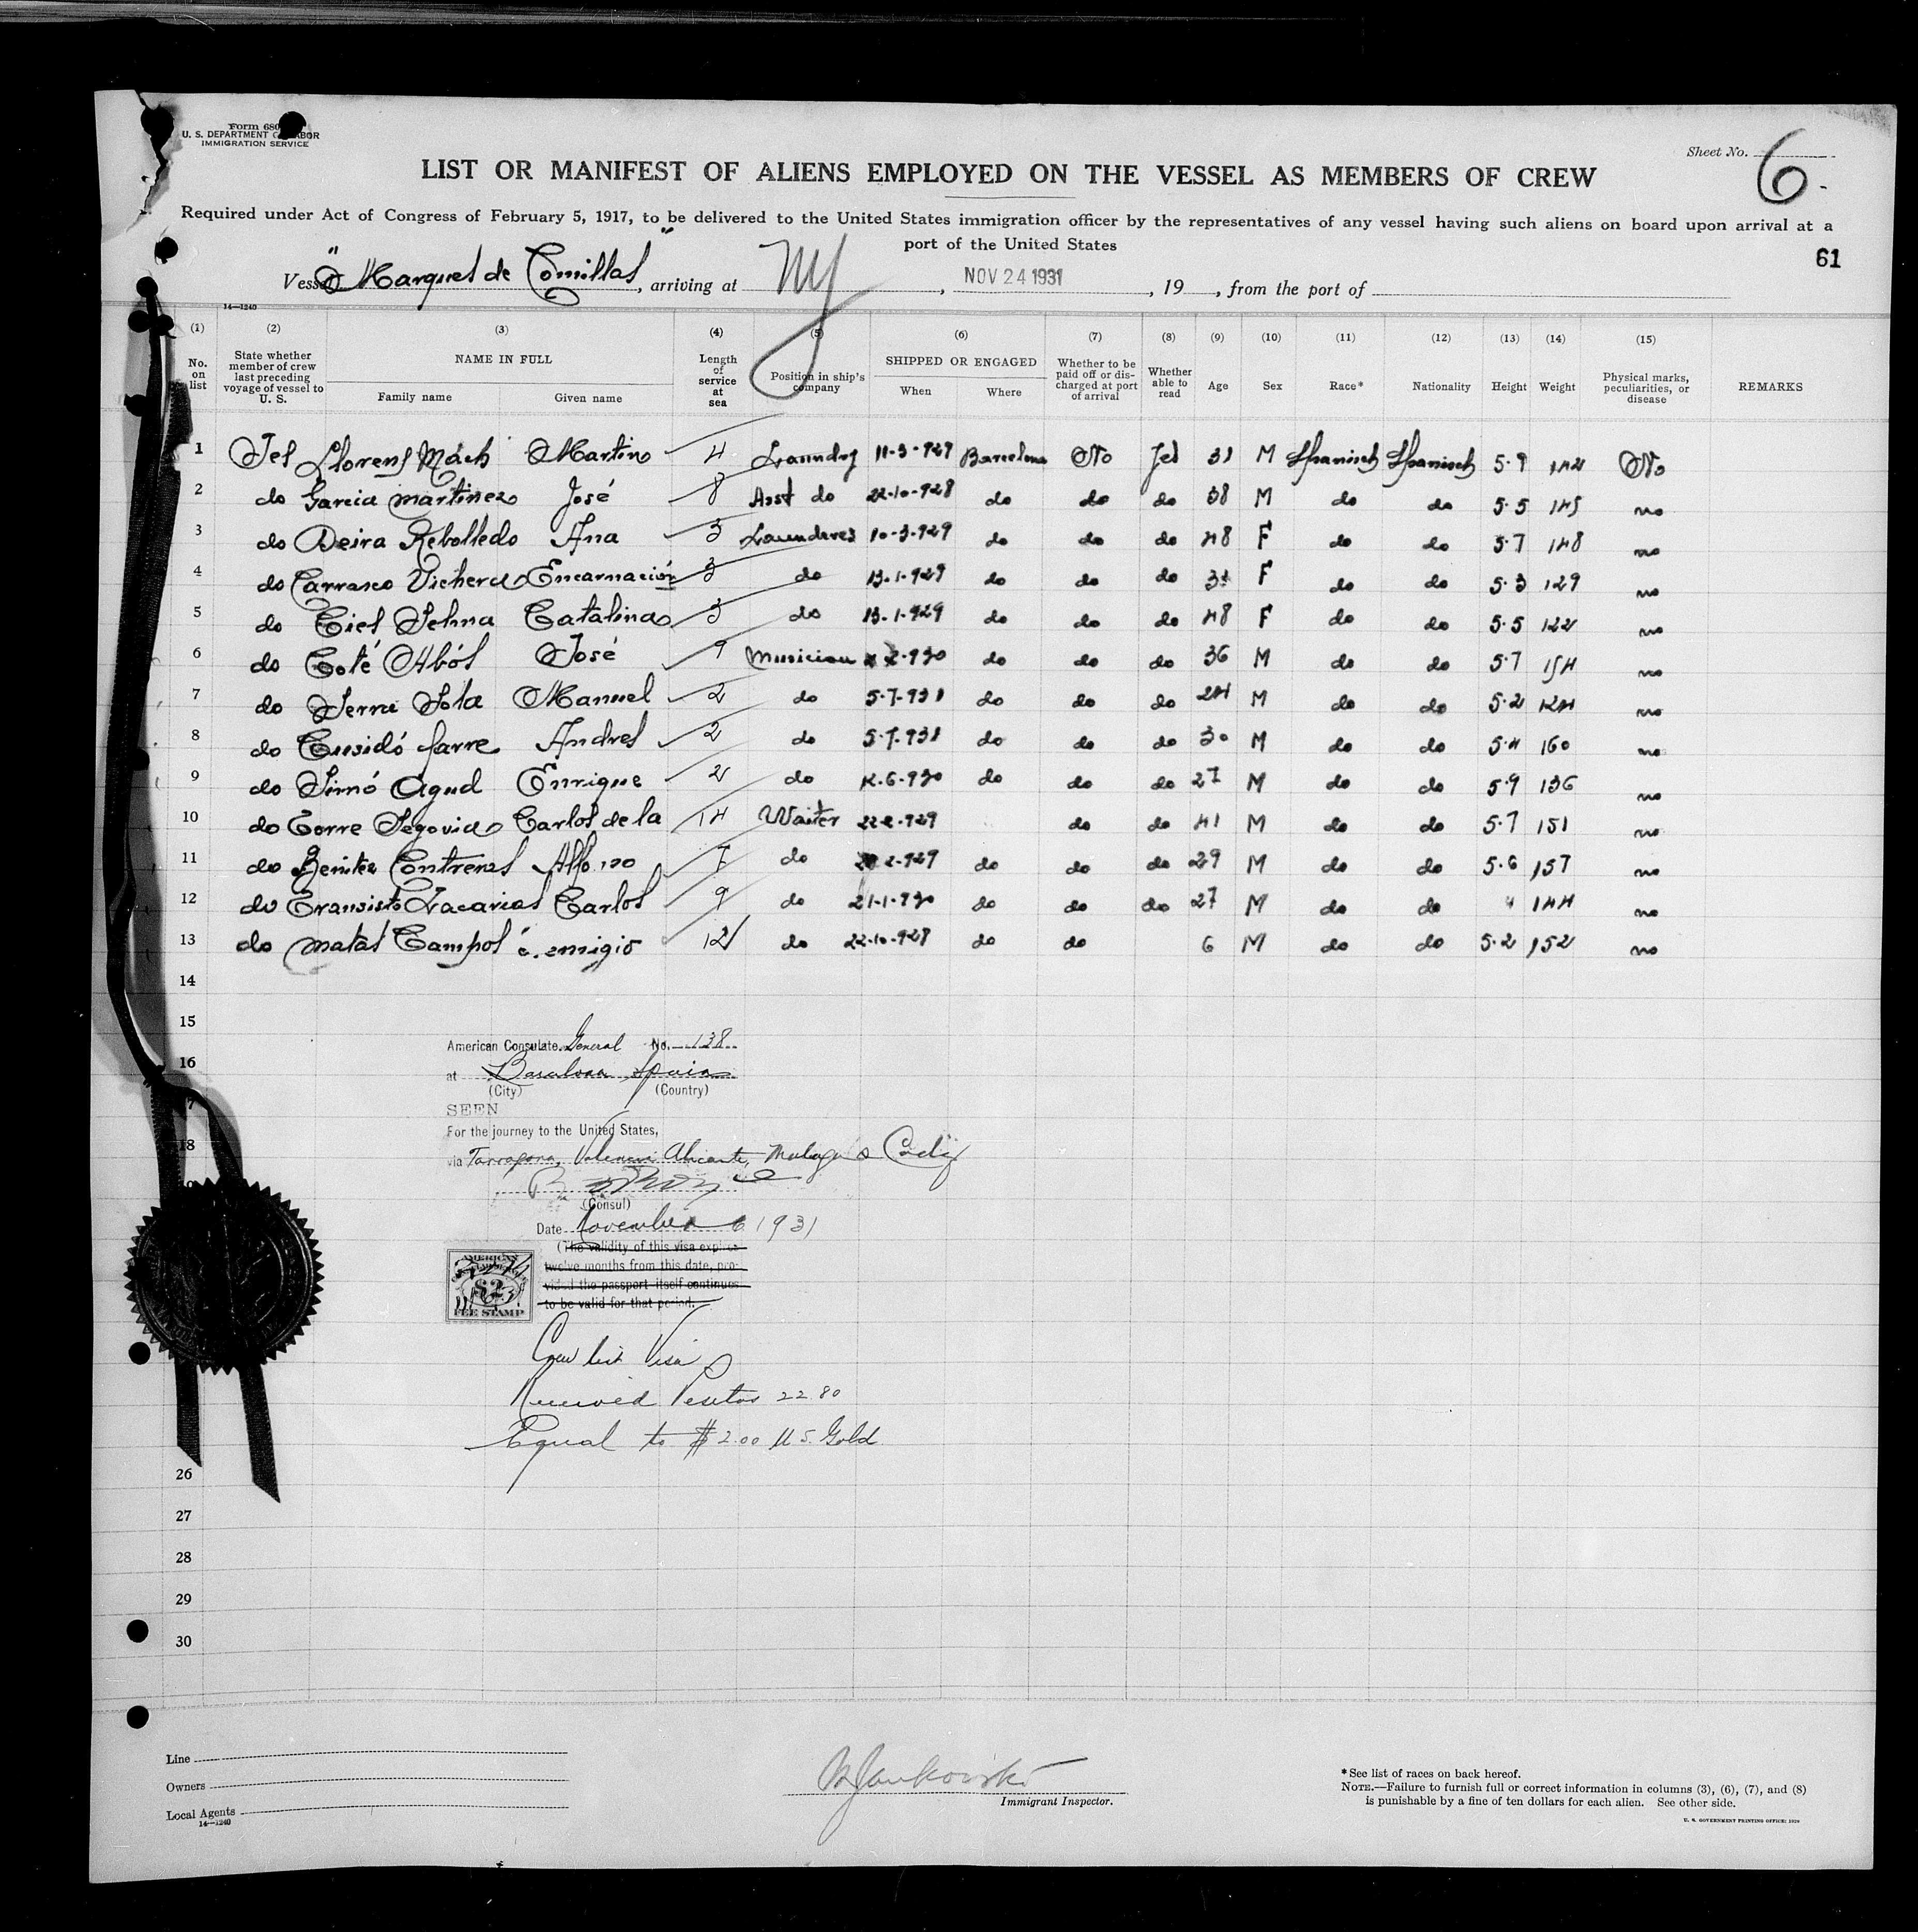 Form 680
U. S. DEPARTMENT OF LABOR
IMMIGRATION SERVICE
Sheet No. 6.
LIST OR MANIFEST OF ALIENS EMPLOYED ON THE VESSEL AS MEMBERS OF CREW
Required under Act of Congress of February 5, 1917, to be delivered to the United States immigration officer by the representatives of any vessel having such aliens on board upon arrival at a
port of the United States
61
Vessel "Marques de Comillas", arriving at NY, NOV 24 1931, 19 , from the port of
14—1240
(1) (2) (3) (4) (5) (6) (7) (8) (9) (10) (11) (12) (13) (14) (15)
No. on list State whether member of crew last preceding voyage of vessel to U. S. NAME IN FULL Family name Given name Length of service at sea Position in ship's company SHIPPED OR ENGAGED When Where Whether to be paid off or discharged at port of arrival Whether able to read Age Sex Race* Nationality Height Weight Physical marks, peculiarities, or disease REMARKS
1 Yes Llorens Mach Martin 4 Laundry 11-3-929 Barcelona No Yes 31 M Spanisch Spanisch 5·9 142 No
2 do Garcia Martinez José 8 Asst do 22-10-928 do do do 38 M do do 5·5 145 no
3 do Deira Rebolledo Ana 3 Laundres 10-3-929 do do do 48 F do do 5·7 148 no
4 do Carrasco Vichera Encarnación 3 do 13-1-929 do do do F do do 5·3 129 no
5 do Tiel Selma Catalina 3 do 13-1-929 do do do 48 F do do 5·5 122 no
6 do Coté Abós José 9 Musician 2-930 do do do 36 M do do 5·7 154 no
7 do Serra Sola Manuel 2 do 5-7-931 do do do 24 M do do 5·2 124 no
8 do Cusidó farre Andres 2 do 5-7-931 do do do 30 M do do 5·4 160 no
9 do Simó Agud Enrique 2 do 12-6-930 do do do 27 M do do 5·9 136 no
10 do Torre Segovia Carlos de la 14 Waiter 22-2-929 do do 41 M do do 5·7 151 no
11 do Benitez Contreras Alfonso 7 do 2-929 do do do 29 M do do 5·6 157 no
12 do Transisto Zacarias Carlos 9 do 21-1-930 do do do 27 M do do 4 144 no
13 do Matas Campos emigio 12 do 22-10-928 do do 6 M do do 5·2 152 no
14
15
16
17
18
American Consulate General No. 138
at Barcelona Spain
(City) (Country)
SEEN
For the journey to the United States,
via Tarragona, Valencia Alicante, Malaga & Cadiz
(Consul)
Date November 6 1931
(The validity of this visa expires
twelve months from this date, pro-
vided the passport itself continues
to be valid for that period.
AMERICAN
$2
FEE STAMP
Crew list Visa
Received Pesetas 22.80
Equal to $2.00 U.S. Gold
26
27
28
29
30
Line
Owners
Local Agents
14—1240
Jankowski
Immigrant Inspector.
* See list of races on back hereof.
NOTE.—Failure to furnish full or correct information in columns (3), (6), (7), and (8)
is punishable by a fine of ten dollars for each alien. See other side.
U. S. GOVERNMENT PRINTING OFFICE: 1929